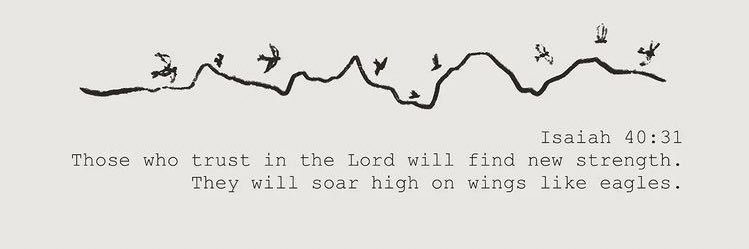 Isaiah 40:31
Those who trust in the Lord will find new strength.
They will soar high on wings like eagles.